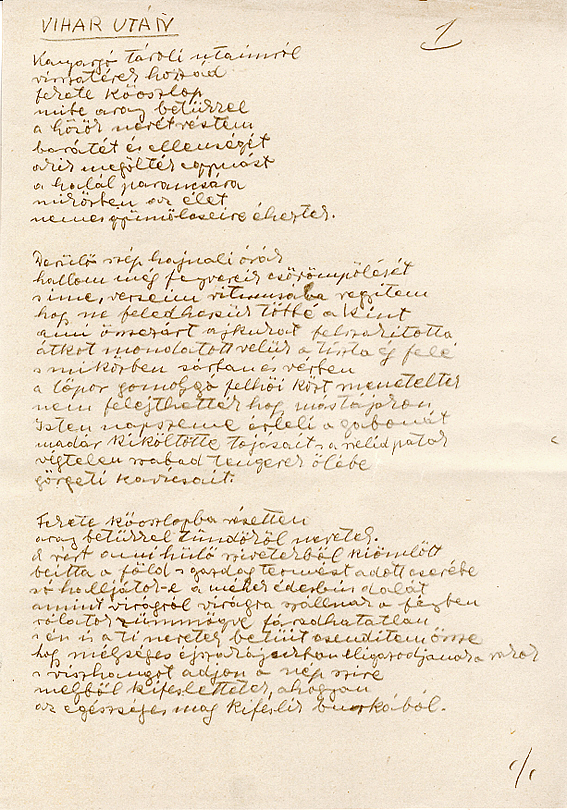 VIHAR UTÁN
1
Kanyargó távoli utaimról
visszatérek hozzád
fekete kőoszlop
mibe arany betükkel
a hősök nevét véstem
barátét és ellenségét
akik megölték egymást
a halál parancsára
miközben az élet
nemes gyümölcseire éheztek.
Derülő szép hajnali órák
hallom még fegyvereik csörömpölését
s ime, verseim ritmusába rögzitem
hogy ne feledhessük többé a kint
ami összezárt ajkukat felszakitotta
átkot mondatott velük a tiszta ég felé
s miközben sárban és vérben
a lőpor gomolygó felhői közt meneteltek
nem felejthették hogy más tájakon
Isten napszeme érleli a gabonát
madár kiköltötte tojásait, s a szelid patak
végtelen szabad tengerek ölébe
görgeti kavicsait.
Fekete kőoszlopba vésetten
arany betükkel tündököl nevetek.
A vért ami hülő sziveitekből kiömlött
beitta a föld s gazdag termést adott cserébe
s ti halljátok-e a méhek édesbús dalát
amint virágról virágra szállnak a fényben
rólatok zümmögve fáradhatatlan
s én is a ti nevetek betüit csenditem össze
hogy mélységes éjszakájukban eligazodjanak a vakok
s visszhangot adjon a nép szive
melyből kifeslettetek, ahogyan
az egészséges mag kifeslik burkából.